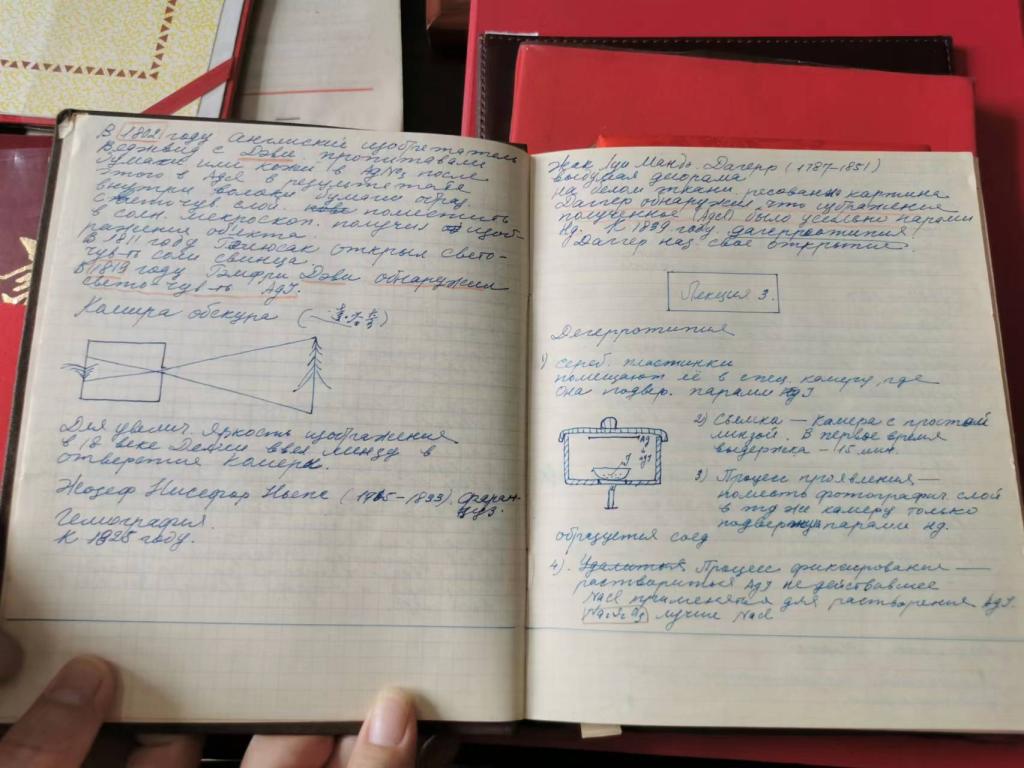 В 1802 году английский изобретатель
Веджвуд с Дэви пропитавали
бумаги или кожи в AgNO₃ после
этого в AgCl в результате
внутри волокн бумаги образ.
светочув слой. поместить
в солн. микроскоп. получил изоб-
ражения объекта.
В 1811 году Гейлюсак открыл свето-
чув-ть соли свинца.
В 1819 году Гемфри Дэви обнаружил
свето чув-ть AgJ.
Камера обскура
Для увелич. яркость изображения
в 18 веке Делии ввел линзу в
отверстия камеры.
Жозеф Нисефор Ньепс (1765-1833). фран-
цуз.
Гелиография.
К 1925 году.
Жак Луи Мандэ Дагерр (1787-1851)
выдумал декорама
на белом ткани рисовано картина
Дагерр обнаружил, что изображения
полученное (AgCl) было усилено парами
Hg. К 1839 году. дагерротипия
Даггер наз. свое открытие
Лекция 3.
Дегерротипия
1) сереб. пластинки
помещают её в спец. камеру, где
она подвер. парами AgJ
Ag
J
AgJ
2) Съёмка — Камера с простой
линзой. В первое время
выдержка – 15 мин.
3) Процесс проявления —
поместь фотографич. слой
в тд же камеру только
подвержци парами Hg.
образуется соед
4). Удалиться Процесс фиксирования —
растворитья AgJ не действавшее
NaCl применятся для растворения AgJ.
лучше NaCl